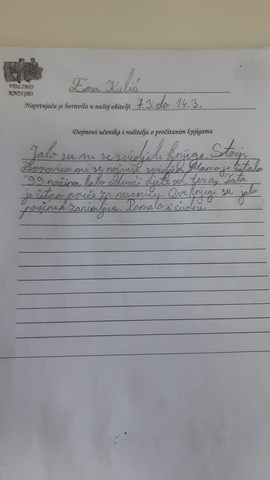 VOLIMO
ČITATI
Ema Kulić
Naprtnjača je boravila u našoj obitelji 7.3. do 14.3.
Dojmovi učenika i roditelja o pročitanim knjigama
Jako su mi se svidjele knjige.
mi se najviše svidjela. Mama je čitala
"99 načina, kako odvući dijete od
je čitao priče za nesanicu. Ove knjige su jako
poučne i zanimljive. Pomalo i čudne.